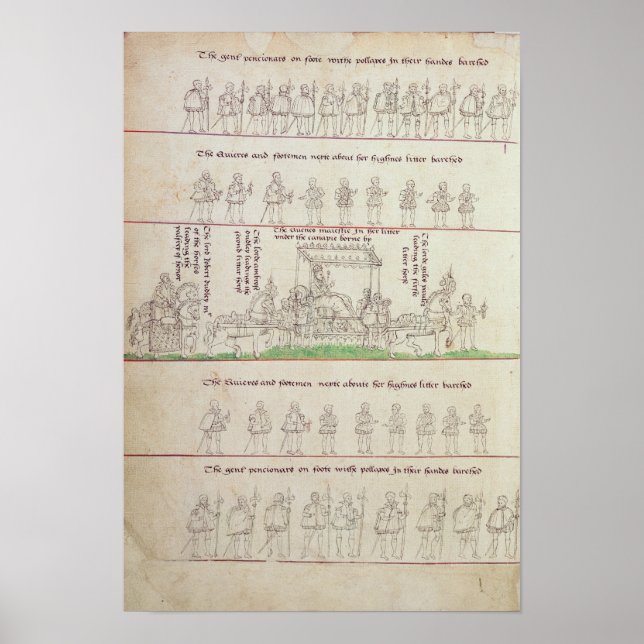 The gent' pencionars on foote withe pollaxes in their handes barehed
The Quieres and footemen nexte about her highnes litter barehed
The lord Robert dudley mr
of the horses
leading the
palfrey of honor
The lorde ambrose
dudley leadinge the
second litter horse
The Quenes maiestie In her litter
under the canapie borne by
The lorde giles pawlet
leading the firste
litter horse
The Quieres and footemen nexte aboute her highnes litter barehed
The gent' pencionars on foote withe pollaxes in their handes barehed